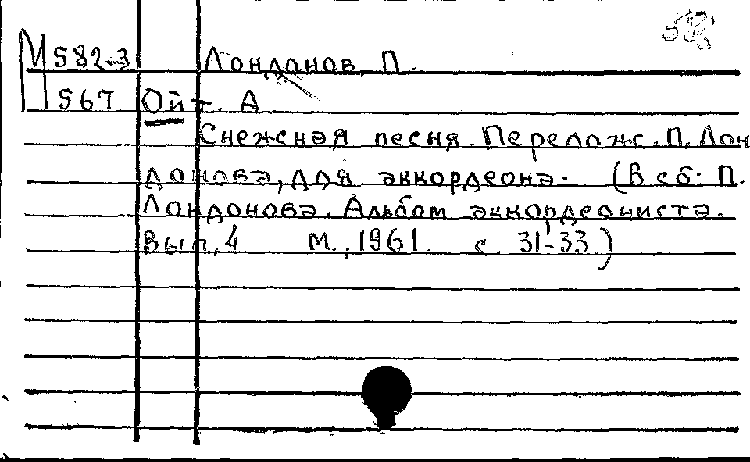 М582-3 Лонданов П.
567 Ойт. А
Снежная песня. Перелож. П. Лон
донова, для аккордеона. (В сб: П.
Лондонова. Альбом аккордеониста.
Вып. 4 М., 1961. с. 31-33)